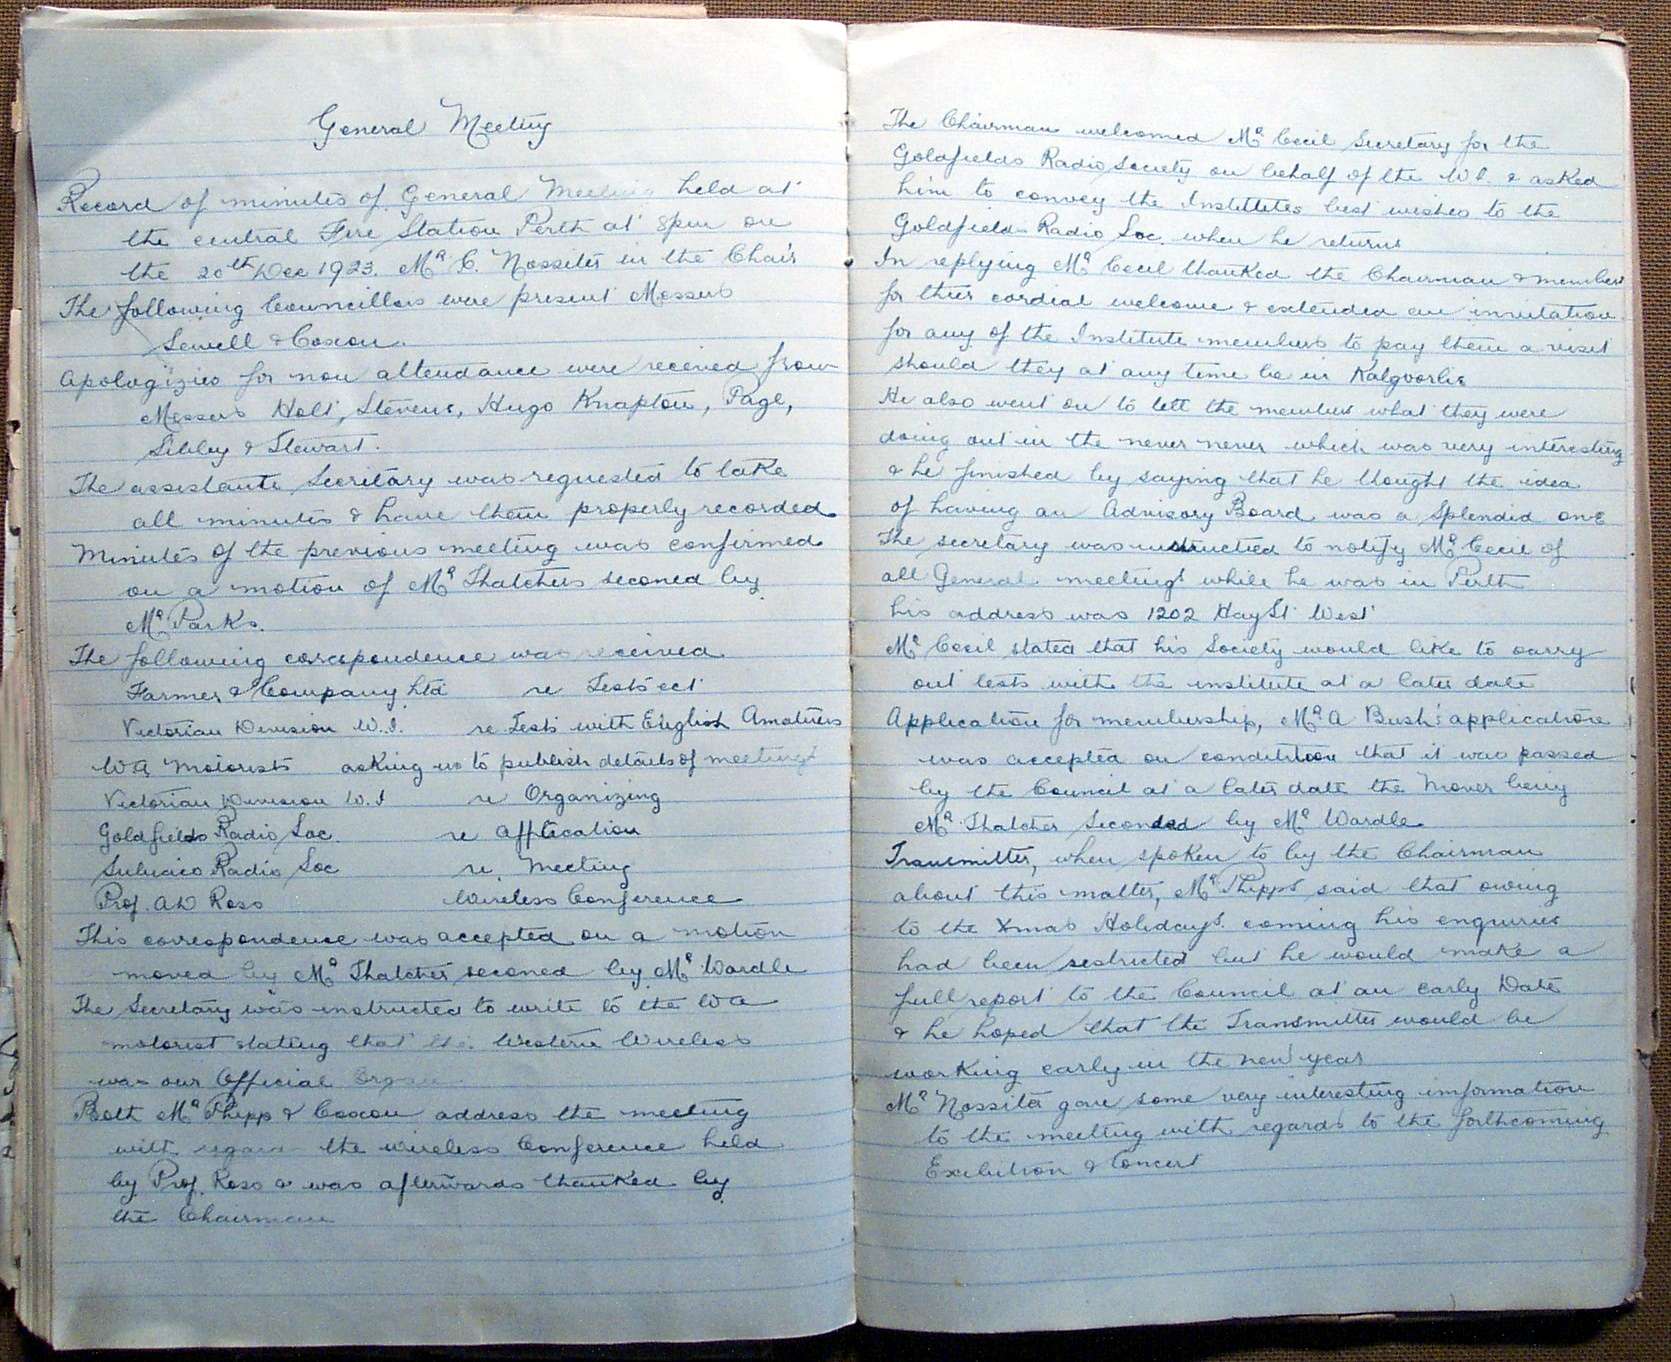 General Meeting
Record of minutes of General Meeting held at
the central Fire Station Perth at 8pm on
the 20th Dec 1923. Mr C. Nossiter in the Chair
The following Councillors were present Messers
Sewell & Coxon.
Apologizies for non attendance were received from
Messers Holt, Stevens, Hugo Knapton, Page,
Sibley & Stewart.
The assistante Secritary was requested to take
all minutes & have them properly recorded.
Minutes of the previous meeting was confirmed
on a motion of Mr Thatchers seconed by
Mr Parks.
The following correspondence was received
Farmer & Company Ltd re Tests ect
Victorian Division W.I. re Tests with English Amatures
WA Motorists asking us to publish details of meetings
Victorian Division W.I re Organizing
Goldfields Radio Soc. re application
Subiaco Radio Soc re. Meeting
Prof. A D Ross Wireless Conference
This correspondence was accepted on a motion
moved by Mr Thatcher seconed by Mr Wardle
The Secretary was instructed to write to the WA
motorist stating that the Western Wireless
was our Official Organ.
Both Mr Phipp & Coxon address the meeting
with regard the wireless Conference held
by Prof. Ross & was afterwards thanked by
the Chairman
The Chairman welcomed Mr Cecil Secretary for the
Goldfields Radio Society on behalf of the W.I. & asked
him to convey the Institutes best wishes to the
Goldfields Radio Soc. when he returns
In replying Mr Cecil thanked the Chairman & members
for thier cordial welcome & extended an invitation
for any of the Institute members to pay them a visit
should they at any time be in Kalgoorlie
He also went on to tell the members what they were
doing out in the never never which was very interesting
& he finished by saying that he thought the idea
of having an Advisory Board was a Splendid one
The secretary was instructed to notify Mr Cecil of
all General meetings while he was in Perth
his address was 1202 Hay St West
Mr Cecil stated that his Society would like to carry
out tests with the institute at a later date
Application for membership, Mr A Bush's application
was accepted on condition that it was passed
by the Council at a later date the Mover being
Mr Thatcher Seconded by Mr Wardle
Transmitter, when spoken to by the Chairman
about this matter, Mr Phipps said that owing
to the Xmas Holidays coming his enquiries
had been restricted but he would make a
full report to the Council at an early Date
& he hoped that the Transmitter would be
working early in the new year
Mr Nossiter gave some very interesting information
to the meeting with regards to the forthcoming
Exibition & Concert